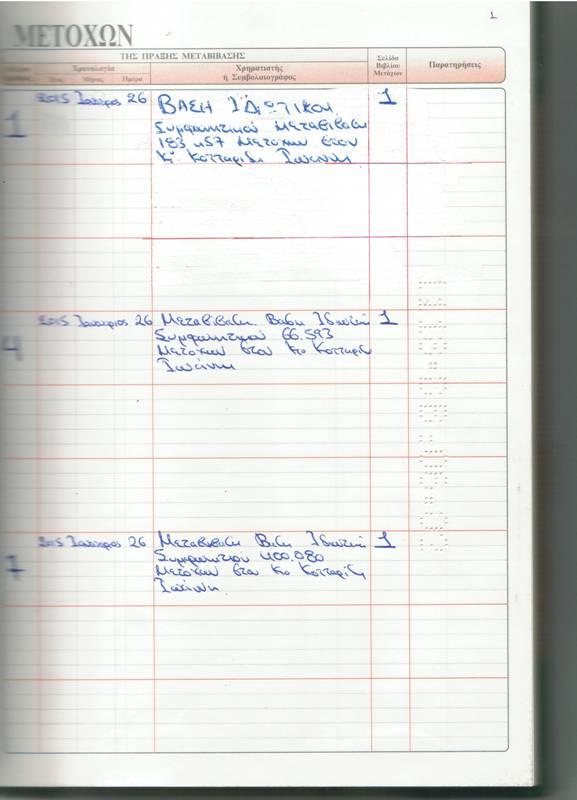 1
ΜΕΤΟΧΩΝ
ΤΗΣ ΠΡΑΞΗΣ ΜΕΤΑΒΙΒΑΣΗΣ
Χρονολογία
Έτος Μήνας Ημέρα
Χρηματιστής
ή Συμβολαιογράφος
Σελίδα
Βιβλίου
Μετόχων
Παρατηρήσεις
1 2015 Ιανουάριος 26 ΒΑΣΗ ΙΔΙΩΤΙΚΟΥ 1
Συμφωνητικού Μεταβίβαση
183 457 Μετοχων στον
Κο Κοτταρίδη Ιωάννη
4 2015 Ιανουάριος 26 Μεταβίβαση Βαση Ιδιωτικ 1
Συμφωνητικού 66.593
Μετοχων στον Κο Κοτταρίδ
Ιωάννη
7 2015 Ιανουάριος 26 Μεταβίβαση Βαση Ιδιωτικ 1
Συμφωνητικού 400.080
Μετοχων στον Κο Κοτταρίδη
Ιωάννη